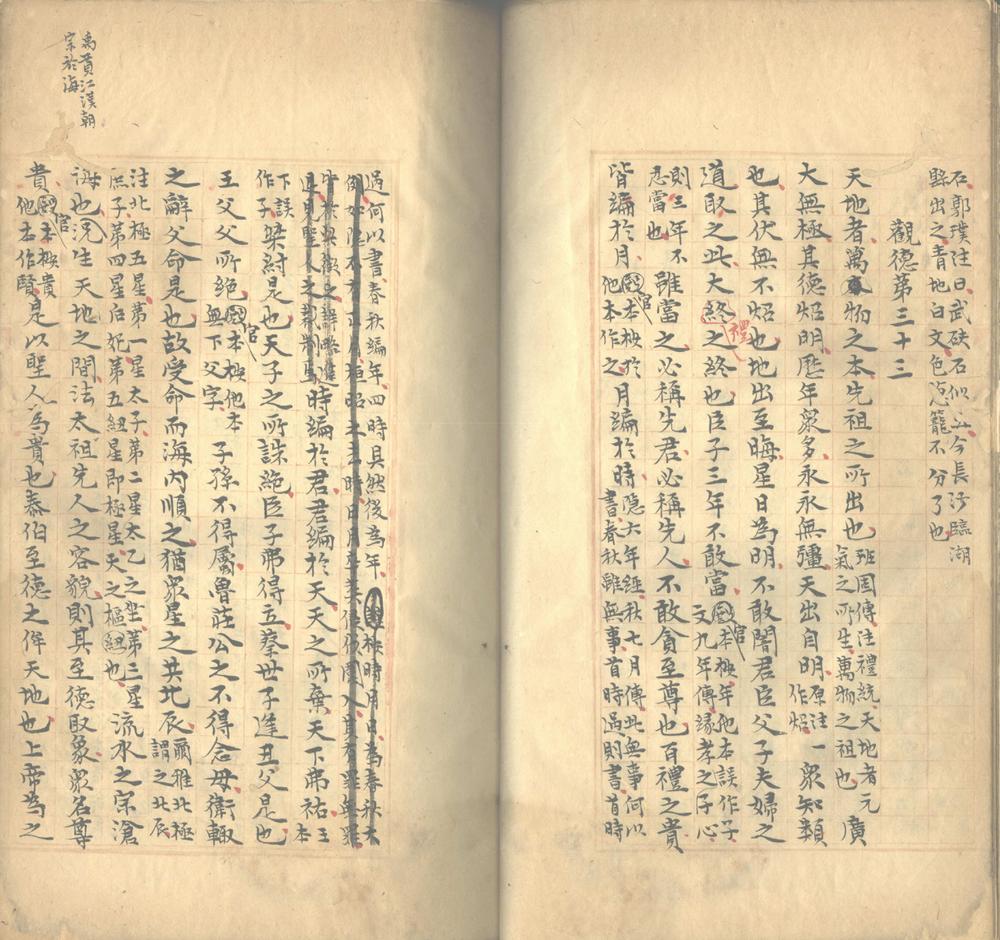 石郭璞注曰武砆石似玉今長沙臨湖
縣出之青地白文色蔥蘢不分了也
觀德第三十三
天地者萬物之本先祖之所出也班固傳注禮統天地者元
氣之所生萬物之祖也廣
大無極其德炤明歷年眾多永永無疆天出自明原注
作炤一眾知類
也其伏無不炤也地出至晦星日為明不敢闇君臣父子夫婦之
道取之此大禮之終也臣子三年不敢當官本按年他本誤作子
文九年傳緣孝子之心
則三年不
忍當也雖當之必稱先君必稱先人不敢貪至尊也百禮之貴
皆編於月官本按於
他本作之月編於時隱六年經秋七月傳此無事何以
書春秋雖無事首時過則書首時
過何以書春秋編年四時具然後為年
時編於君君編於天天之所棄天下弗祐王本
下誤
作子桀紂是也天子之所誅絕臣子弗得立蔡世子逢丑父是也
王父父所絕官本按他本
無下父字子孫不得屬魯莊公之不得念母衛輒
之辭父命是也故受命而海內順之猶眾星之共北辰爾雅北極
謂之北辰
注北極五星第一星太子第二星太乙之坐第三星
庶子第四星后妃第五紐星即極星天之樞紐也流水之宗滄
海也況生天地之間法太祖先人之容貌則其至德取象眾名尊
貴官本按貴
他本作賢是以聖人為貴也泰伯至德之侔天地也上帝為之
禹貢江漢朝
宗於海